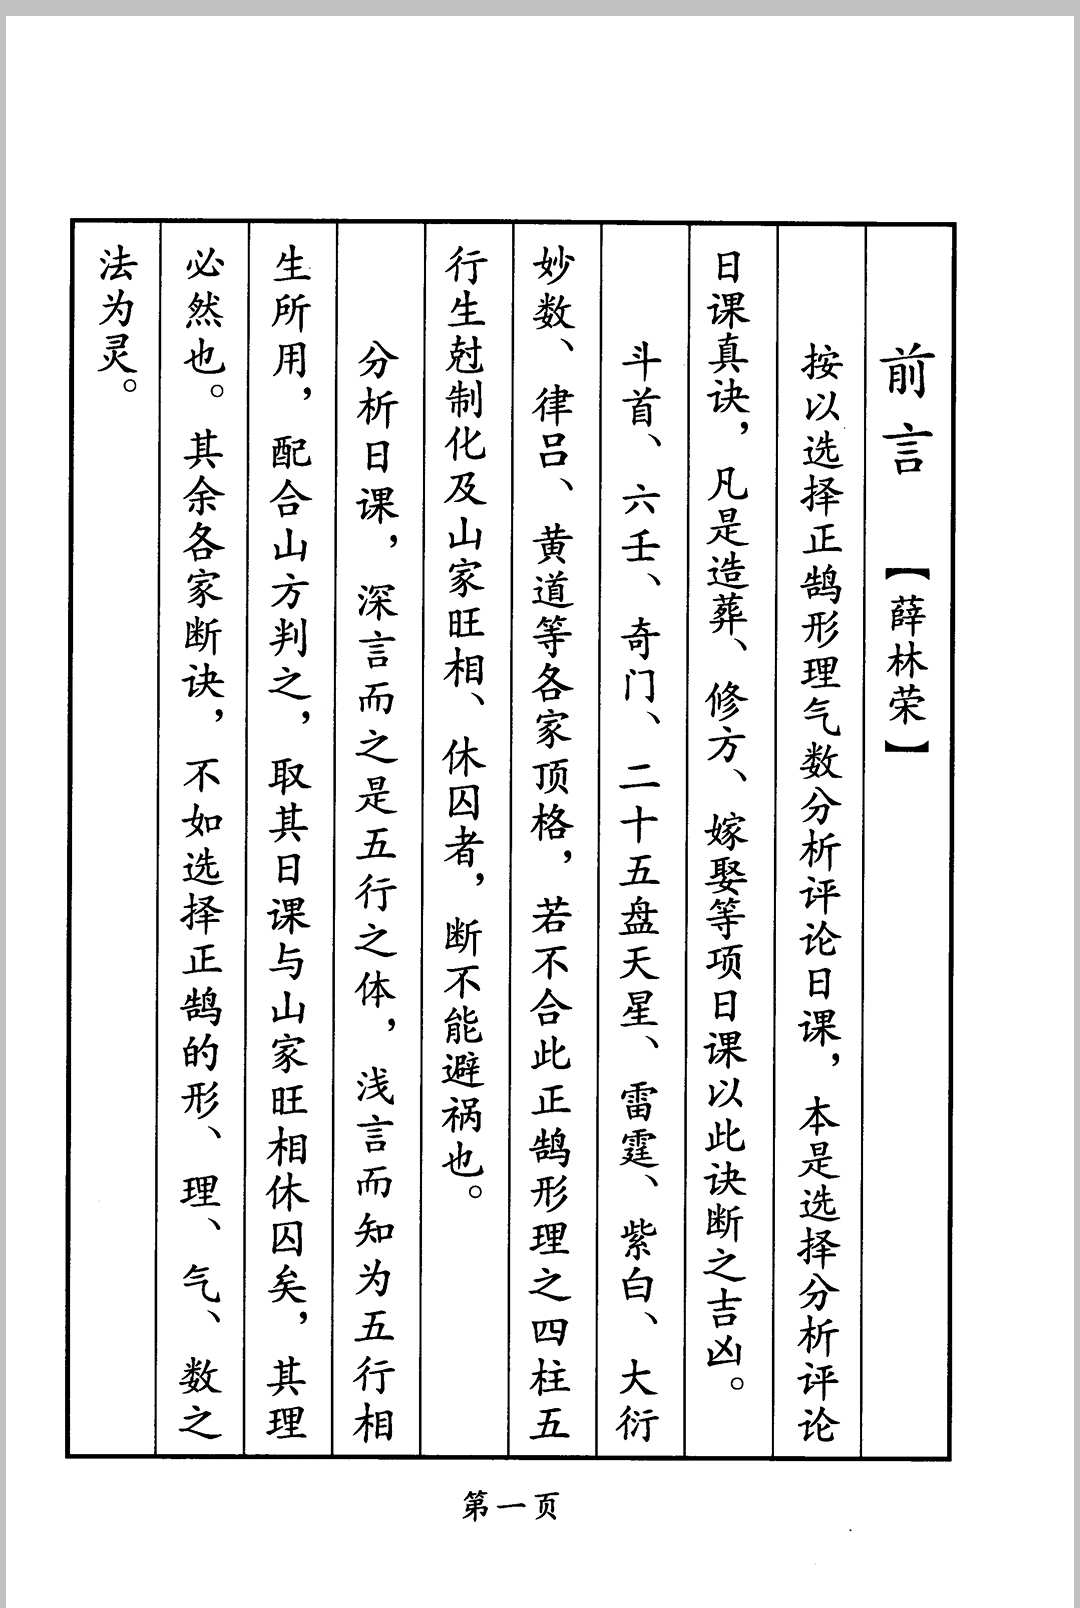 前言 【薛林荣】
按以选择正鹄形理气数分析评论日课，本是选择分析评论
日课真诀，凡是造葬、修方、嫁娶等项日课以此诀断之吉凶。
斗首、六壬、奇门、二十五盘天星、雷霆、紫白、大衍
妙数、律吕、黄道等各家顶格，若不合此正鹄形理之四柱五
行生尅制化及山家旺相、休囚者，断不能避祸也。
分析日课，深言而之是五行之体，浅言而知为五行相
生所用，配合山方判之，取其日课与山家旺相休囚矣，其理
必然也。其余各家断诀，不如选择正鹄的形、理、气、数之
法为灵。
第一页